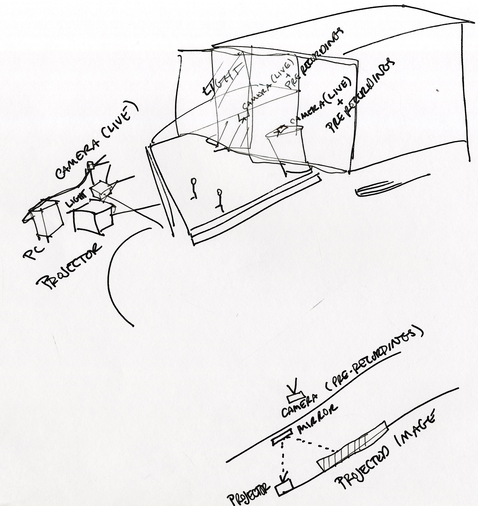 LIGHT
CAMERA(LIVE)
+
PRERECORDINGS
CAMERA(LIVE)
+
PRERECORDINGS
CAMERA(LIVE)
LIGHT
PC
PROJECTOR
CAMERA (PRE-RECORDINGS)
MIRROR
PROJECTOR
PROJECTED IMAGE